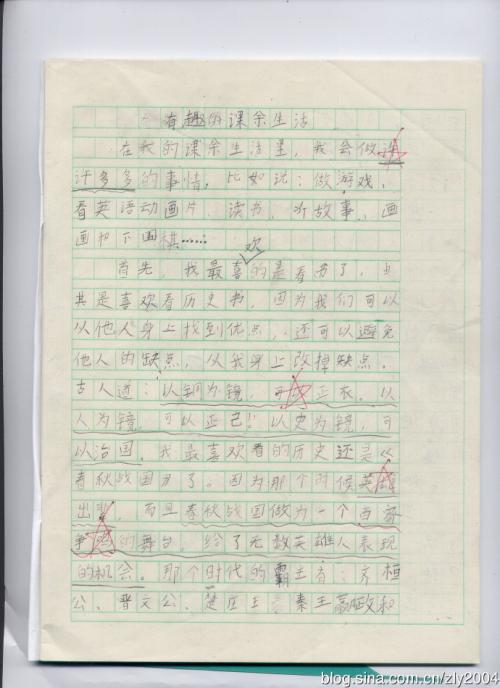 有趣的课余生活
在我的课余生活里，我会做许
许多多的事情，比如说：做游戏、
看英语动画片、读书、听故事、画
画和下围棋……
欢
首先，我最喜的是看书了，尤
其是喜欢看历史书，因为我们可以
从他人身上找到优点，还可以避免
他人的缺点，从我身上改掉缺点。
古人道：以铜为镜，可以正衣，以
人为镜，可以正己！以史为镜，可
以治国。我最喜欢看的历史还是《
春秋战国》了。因为那个时候英雄
出辈，而且春秋战国做为一个百家
争鸣的舞台，给了无数英雄人表现
的机会。那个时代的霸主有：齐桓
公、晋文公、楚庄王、秦王嬴政和
blog.sina.com.cn/zly2004